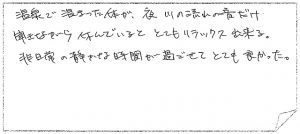 温泉で温まった体が、夜 川の流れの音だけ
聞きながら 休んでいると とてもリラックス出来る。
非日常の静かな時間が過ごせて とても良かった。